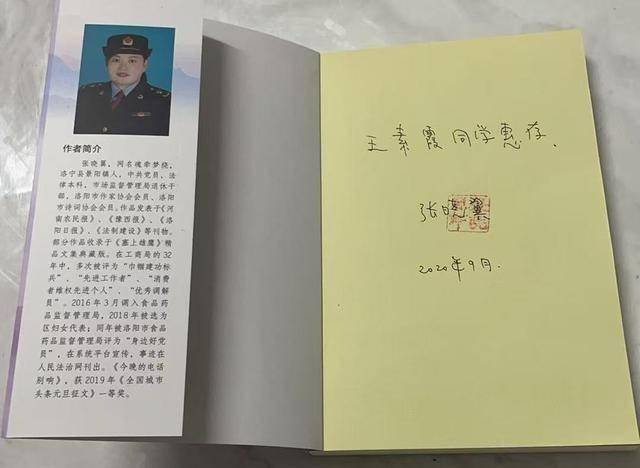 作者简介
张晓翼，网名魂牵梦绕，
洛宁县景阳镇人，中共党员、法
律本科，市场监督管理局退休干
部，洛阳市作家协会会员、洛阳
市诗词协会会员。作品发表于《河
南农民报》、《豫西报》、《洛
阳日报》、《法制建设》等刊物。
部分作品收录于《塞上雄鹰》精
品文集典藏版。在工商局的32
年中，多次被评为“巾帼建功标
兵”、“先进工作者”、“消费
者维权先进个人”、“优秀调解
员”。2016年3月调入食品药
品监督管理局，2018年被选为
区妇女代表；同年被洛阳市食品
药品监督管理局评为“身边好党
员”，在系统平台宣传，事迹在
人民法治网刊出。《今晚的电话
别响》，获2019年《全国城市
头条元旦征文》一等奖。
王素霞同学惠存.
张晓翼
2020年9月.